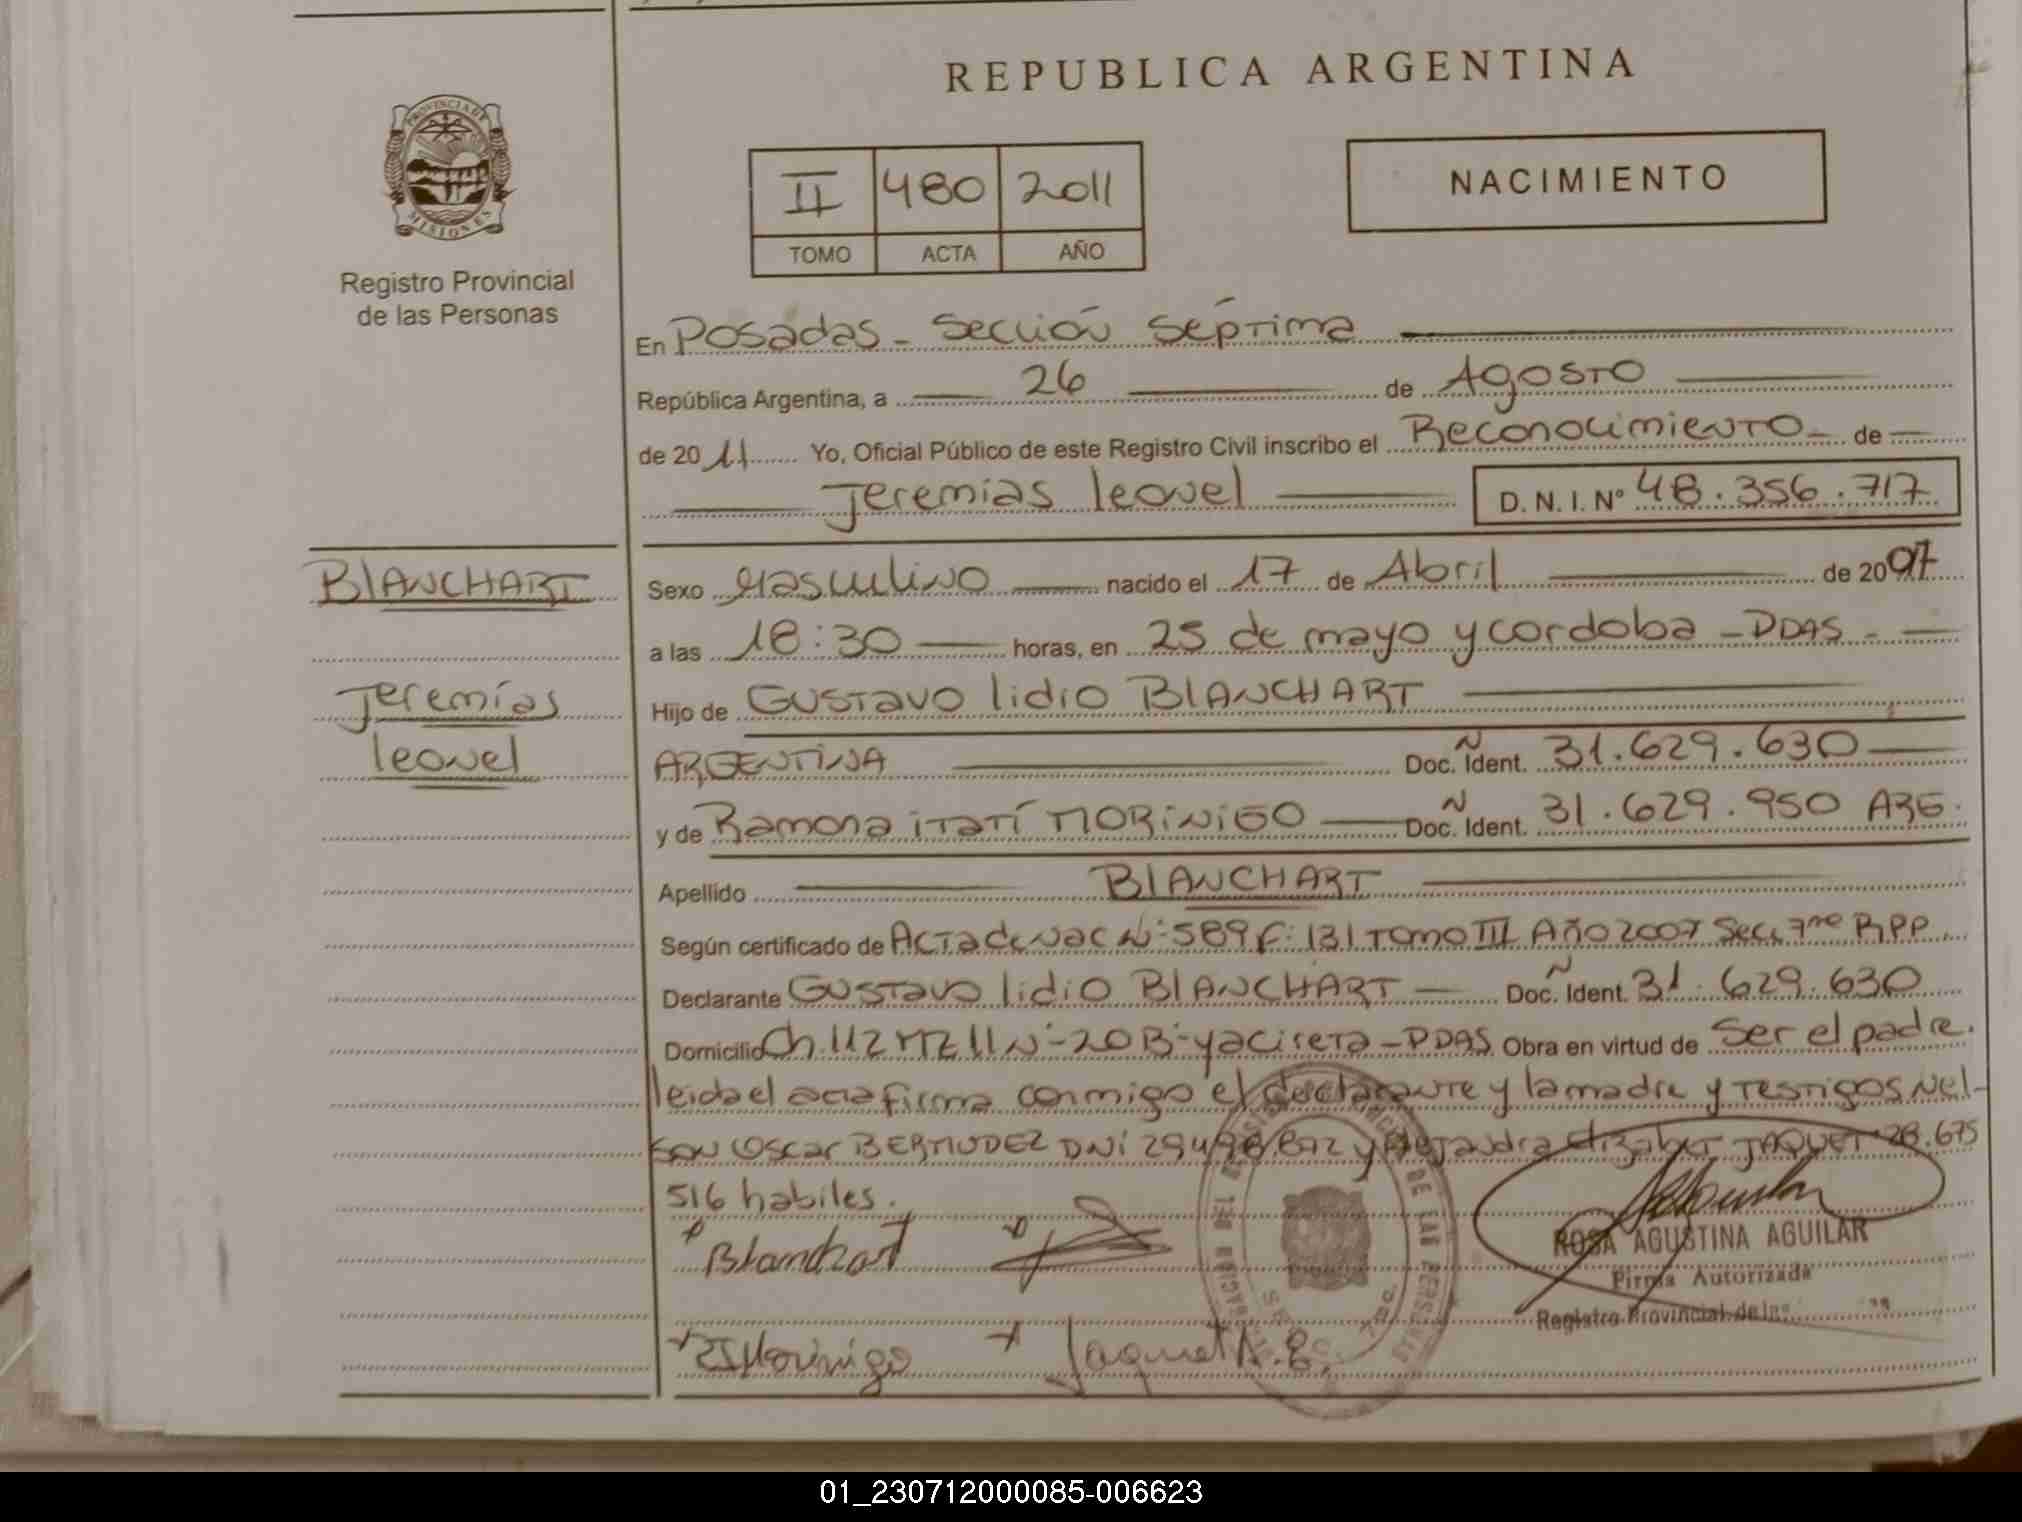 REPUBLICA ARGENTINA
PROVINCIA DE
MISIONES
Registro Provincial
de las Personas
II 480 2011
TOMO ACTA AÑO
NACIMIENTO
En Posadas - Sección Séptima
República Argentina, a 26 de Agosto
de 2011 Yo, Oficial Público de este Registro Civil inscribo el Reconocimiento - de
Jeremias leonel D. N. I. Nº 48.356.717
BlANCHART
Jeremías
leonel
Sexo Masculino nacido el 17 de Abril de 2007
a las 18:30 horas, en 25 de mayo y cordoba - PDAS -
Hijo de GUSTavo lidio BlANCHART
ARGENTINA Doc. Ident. 31.629.630
y de Ramona iTaTí MORiNiGO Doc. Ident. 31.629.950 ARG.
Apellido BlANCHART
Según certificado de ACTa de Nac Nº 589 F: 131 Tomo III Año 2007 Secc 7ma RPP
Declarante GUSTavo lidio BlANCHART Doc. Ident. 31.629.630
Domicilio Ch. 112 MZ 11 Nº 20 Bº yacireta - PDAS Obra en virtud de Ser el padre.
leida el acta firma conmigo el declarante y la madre y TesTigos Nel-
son Oscar BERMUDEZ DNi 29.498.892 y Alejandra Elizabet JAQUET 28.675
516 habiles.
Blanchart
ROSA AGUSTINA AGUILAR
Firma Autorizada
Registro Provincial de las
RIMorinigo Jaquet A. E.
01_230712000085-006623